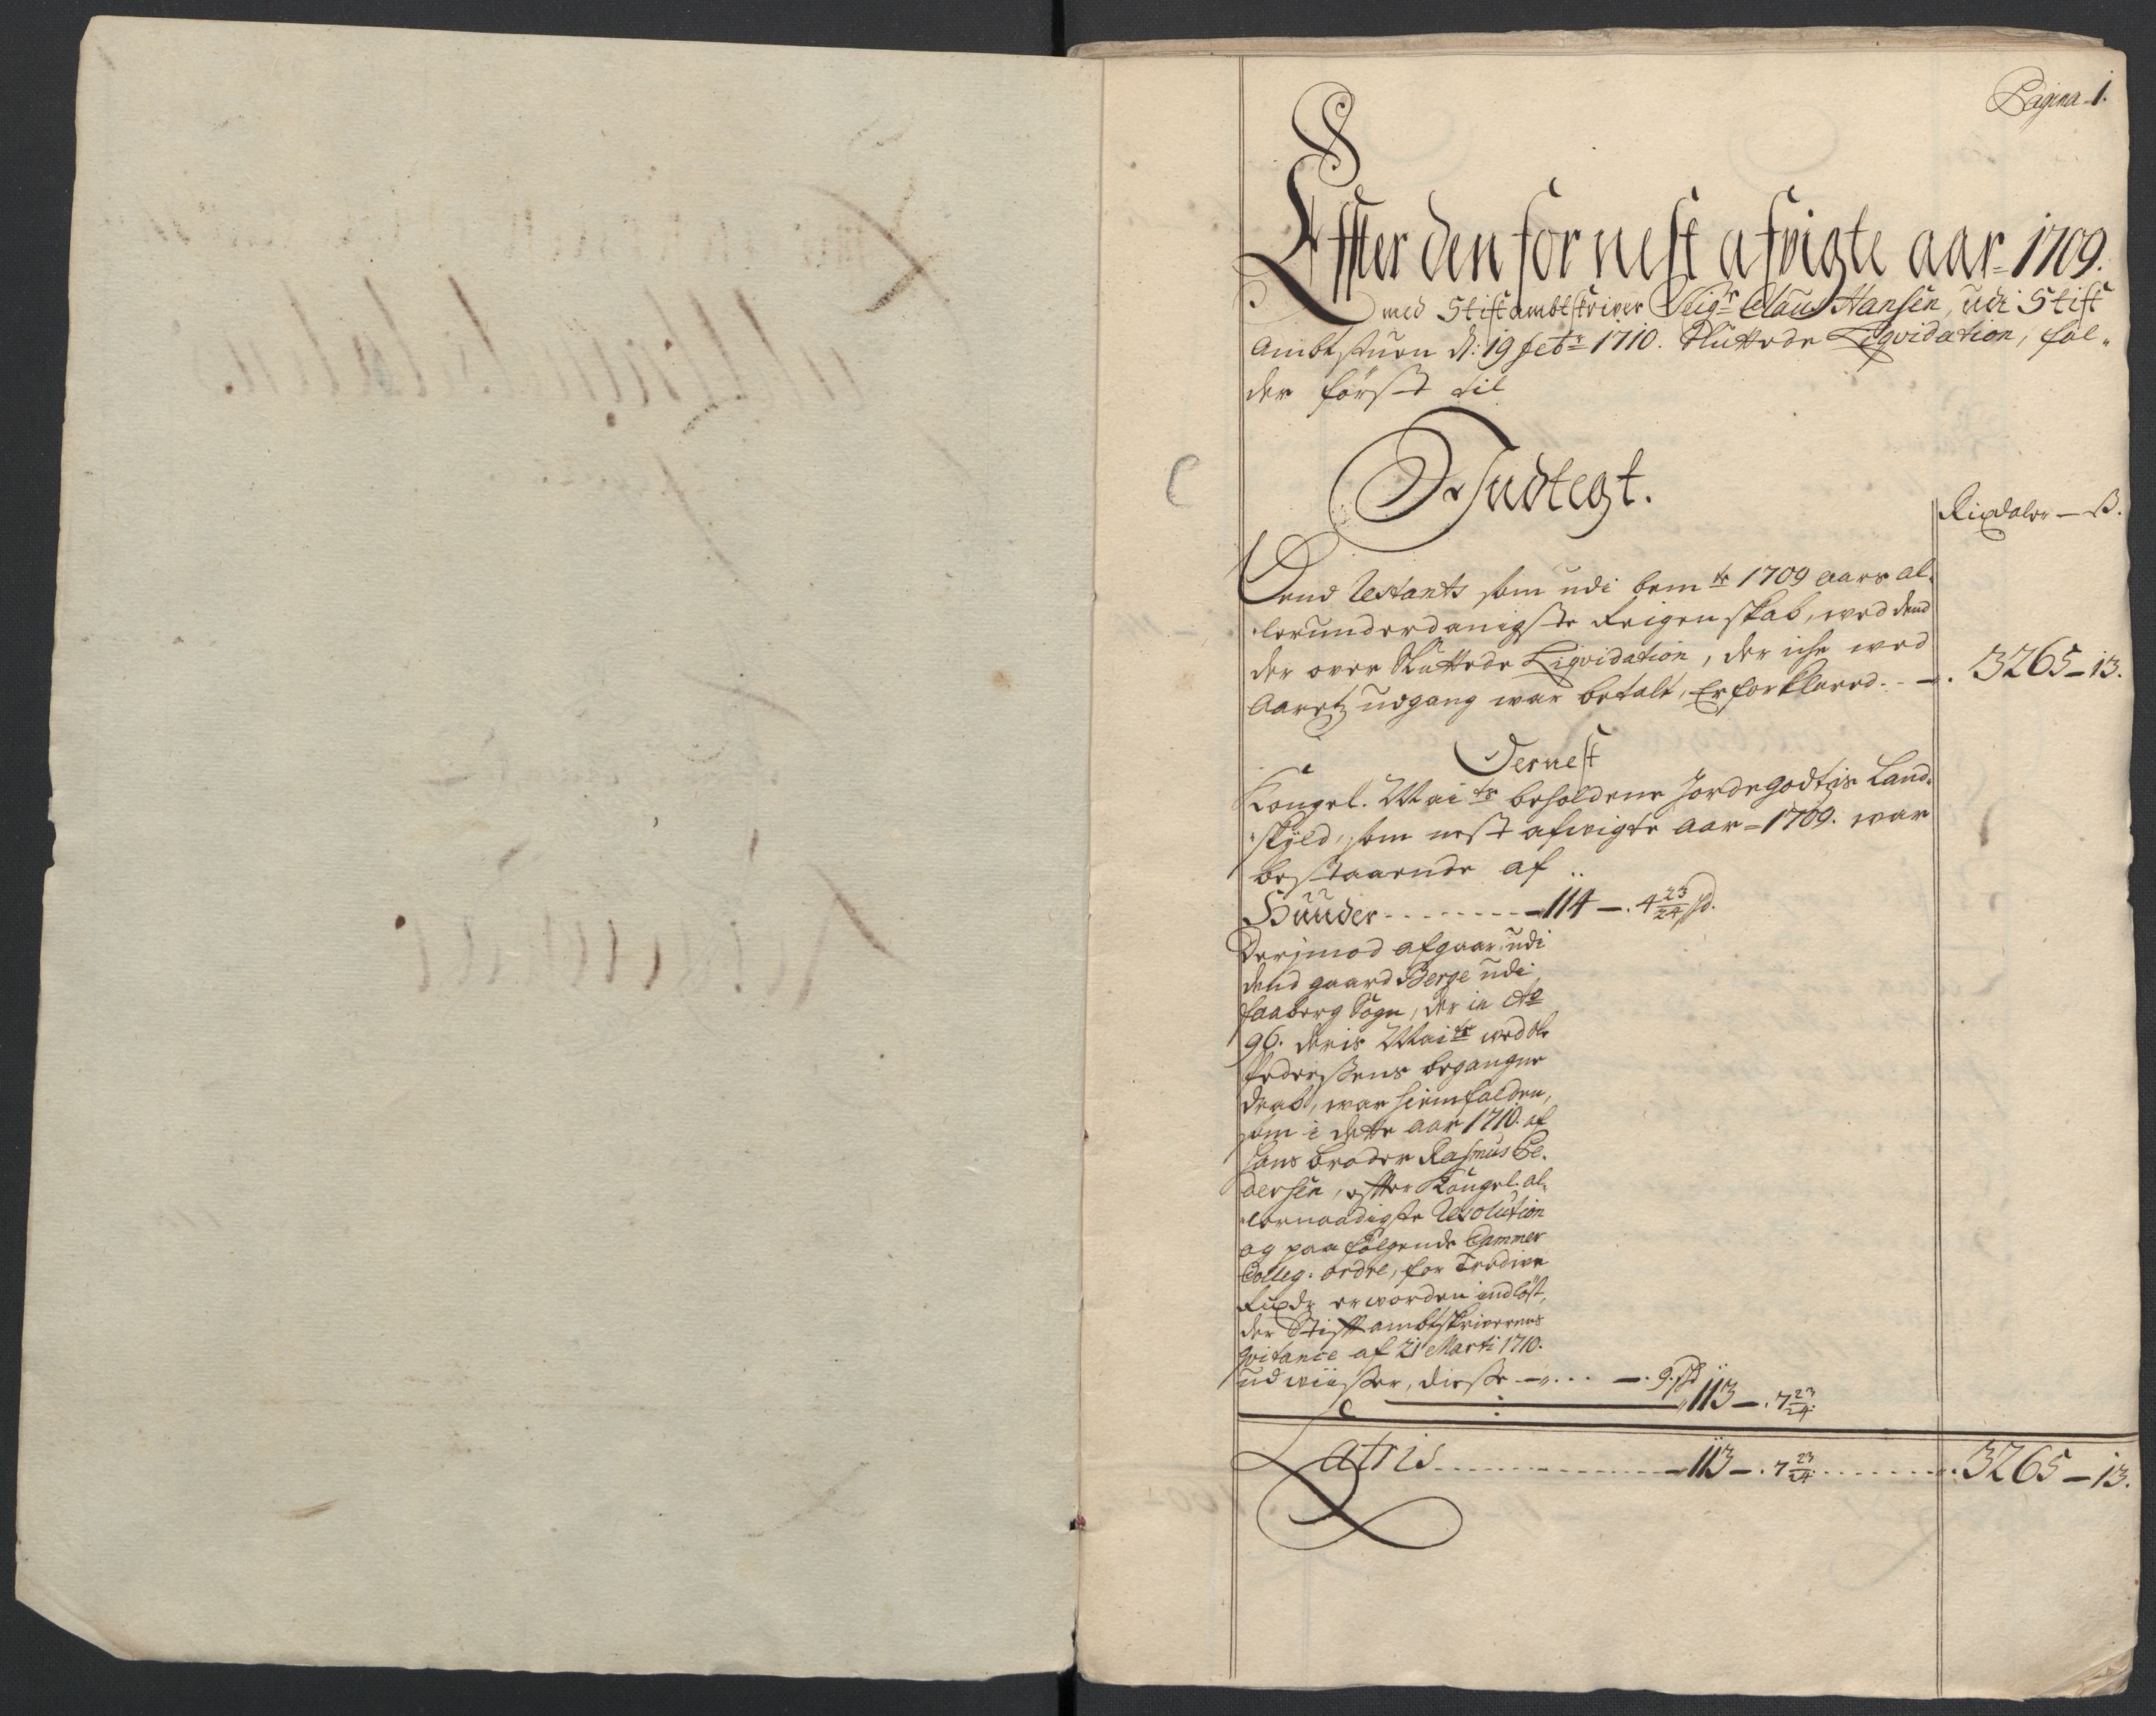 Pagina 1.
Effter den for nest afvigte aar 1709.
med Stiftambtskriver Seigr Claus Hansen, udi Stift
Ambtstuen d: 19 febr 1710. Sluttede Liqvidation, fal„
der først til
Indtegt.
Rixdaler — ß.
Dend Restants som udi bemte 1709 aars al„
lerunderdanigste Reigenskab, wed dend
der over Sluttede Liqvidation, der iche wed
Aaretz udgang war betalt, Er forklared - - 3265 - 13.
Dernest
Kongel. Maits beholdene Jordegodtzis Land„
„skyld, som nest afvigte Aar 1709. war
bestaaende af ..
Huuder - - - - - - 114 - . 4 23/24 sd.
Derjmod afgaar udi
dend gaard Berge udi
Faaberg Sogn, der in Ao
96. deris Maits wed Ole
Pedersens begangne
Drab, war hiemfalden,
som i dette aar 1710. af
hans broder Rasmus Pe„
dersen, effter Kongel. al„
„lernaadigste Resolution
og paafølgende Cammer
Colleg: ordre, for Tredive
Rixdr er worden indløst,
der Stiftambtskriverens
Qvitance af 21 Marti 1710.
udwiisser, disse - . . . - . 9. sd
113 - . 7 23/24.
Latris - - - - - - 113 - . 7 23/24 - - - - - 3265 - 13.